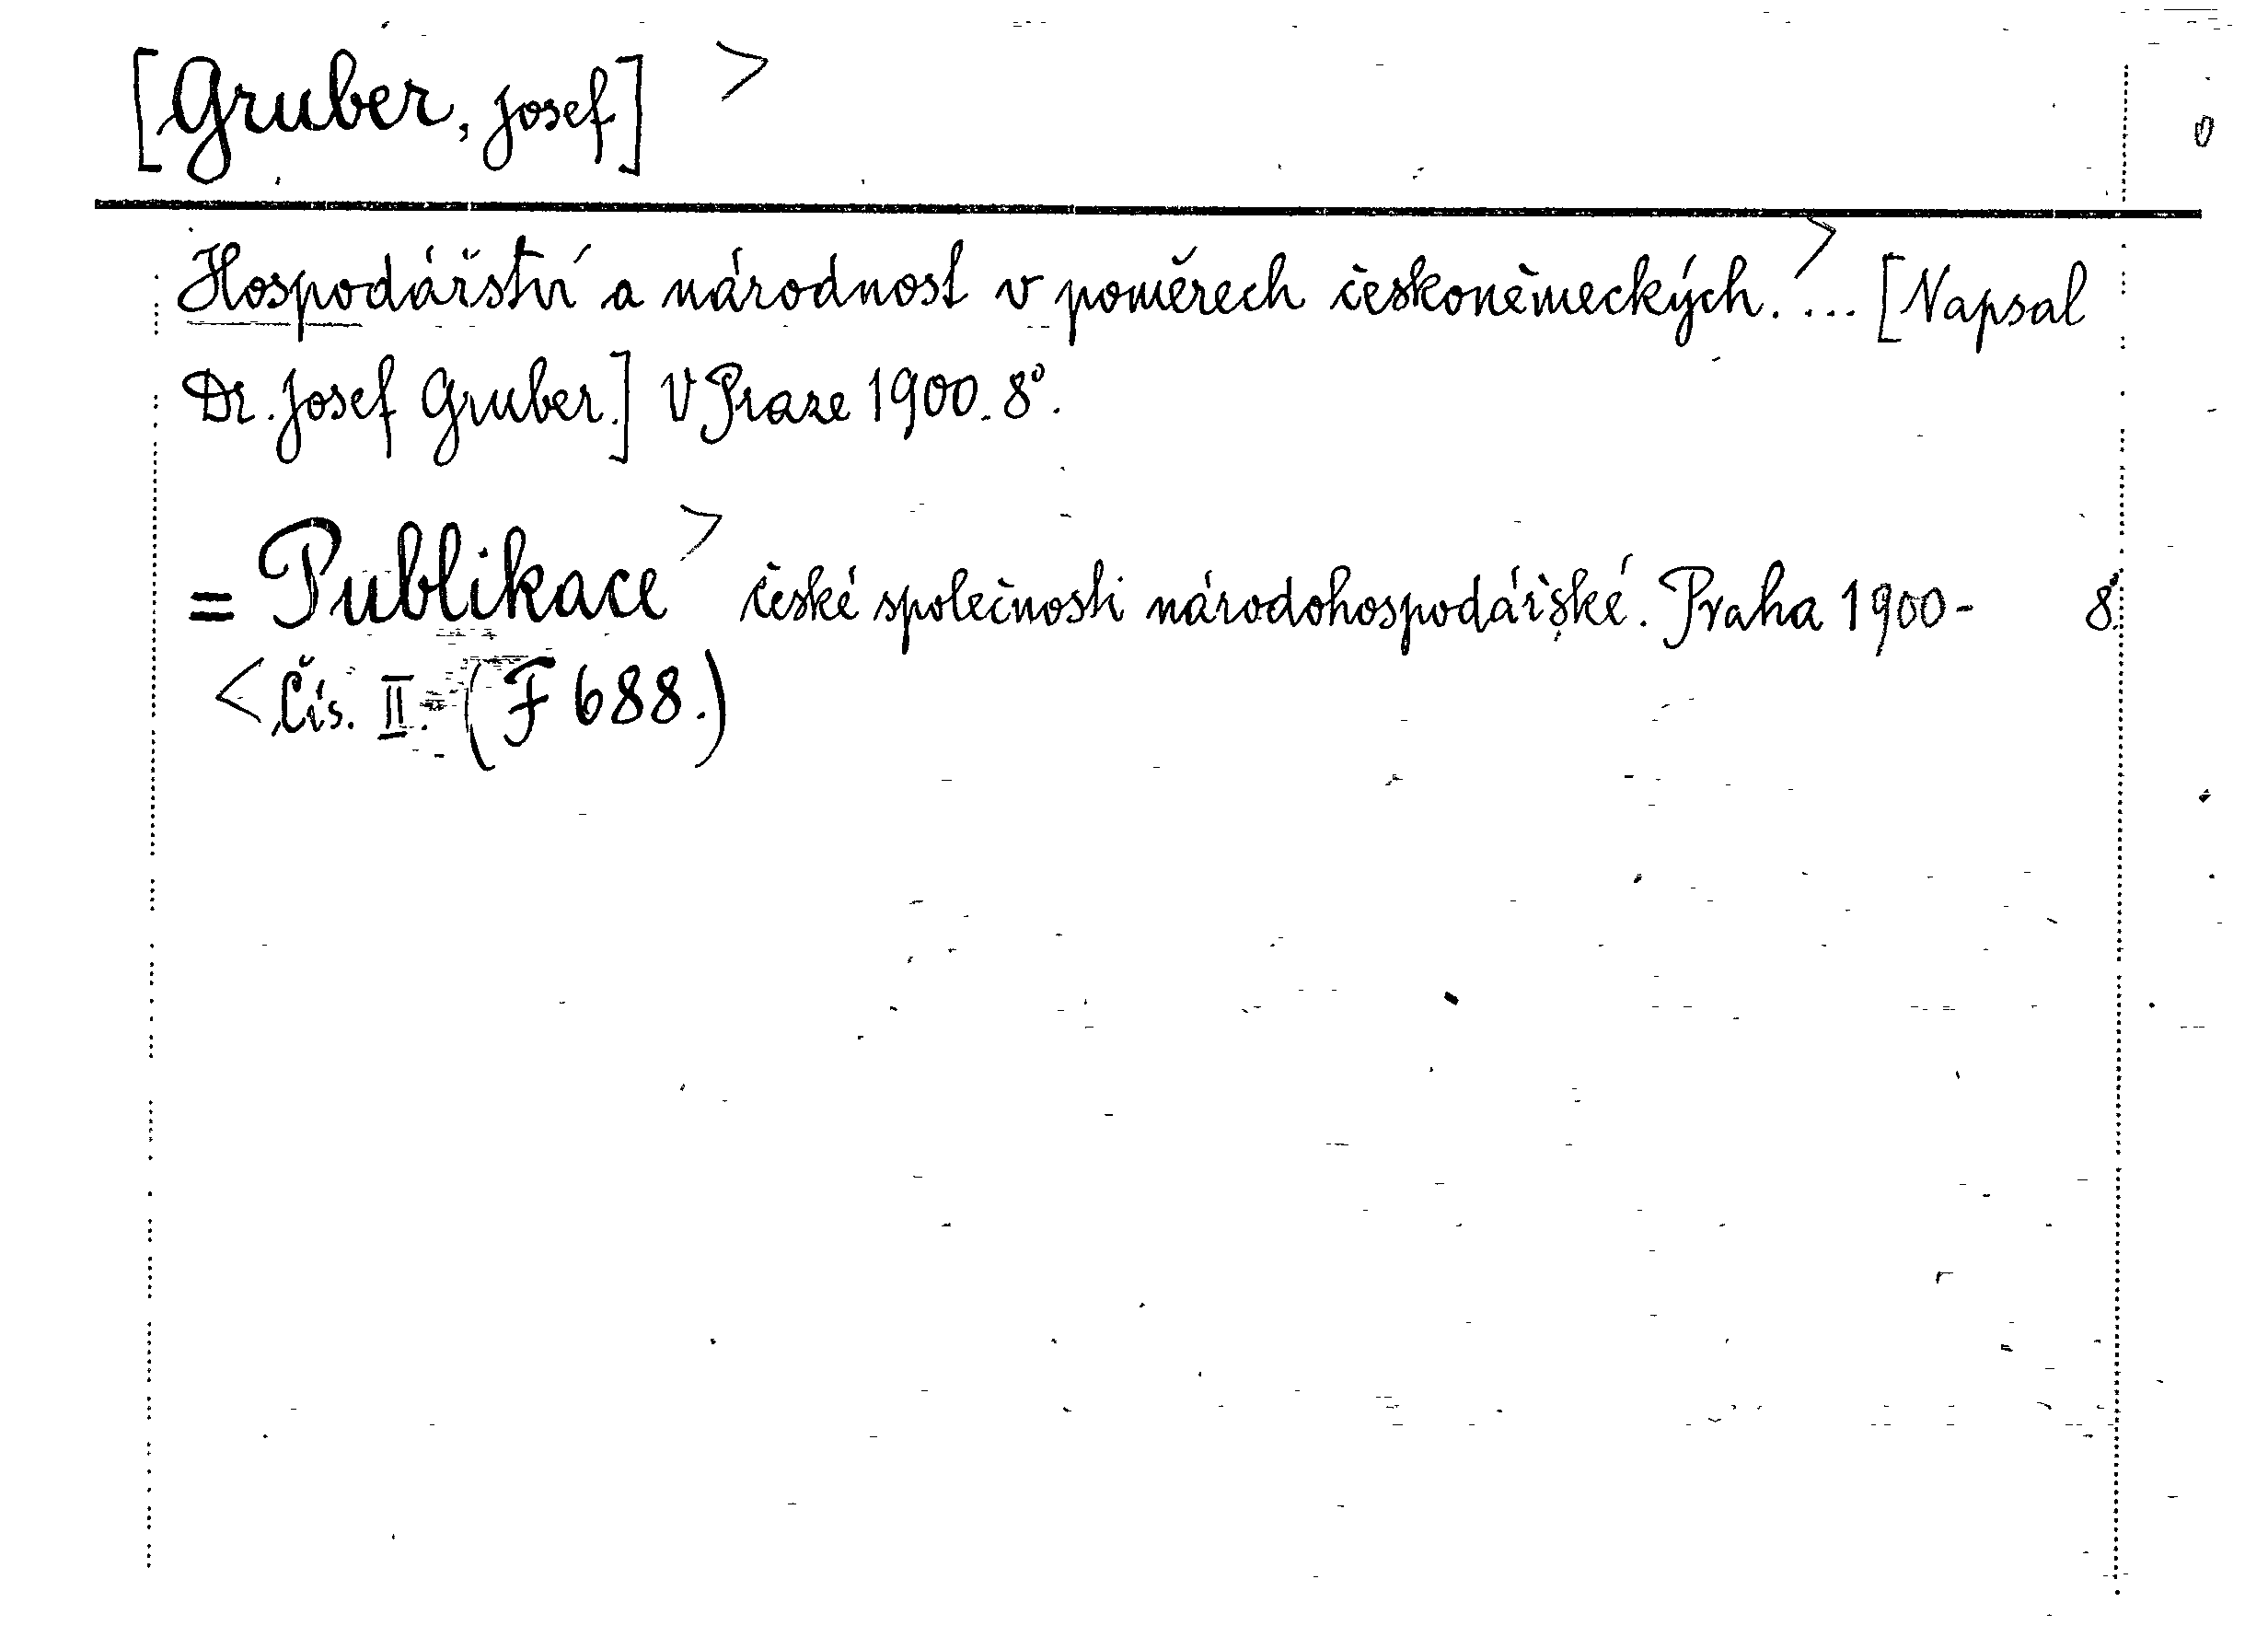 [Gruber, Josef] >
Hospodářství a národnost v poměrech českoněmeckých. > ... [Napsal
Dr. Josef Gruber.] V Praze 1900. 8°.
= Publikace > české společnosti národohospodářské. Praha 1900- 8°.
< Čís. II. (F 688.)